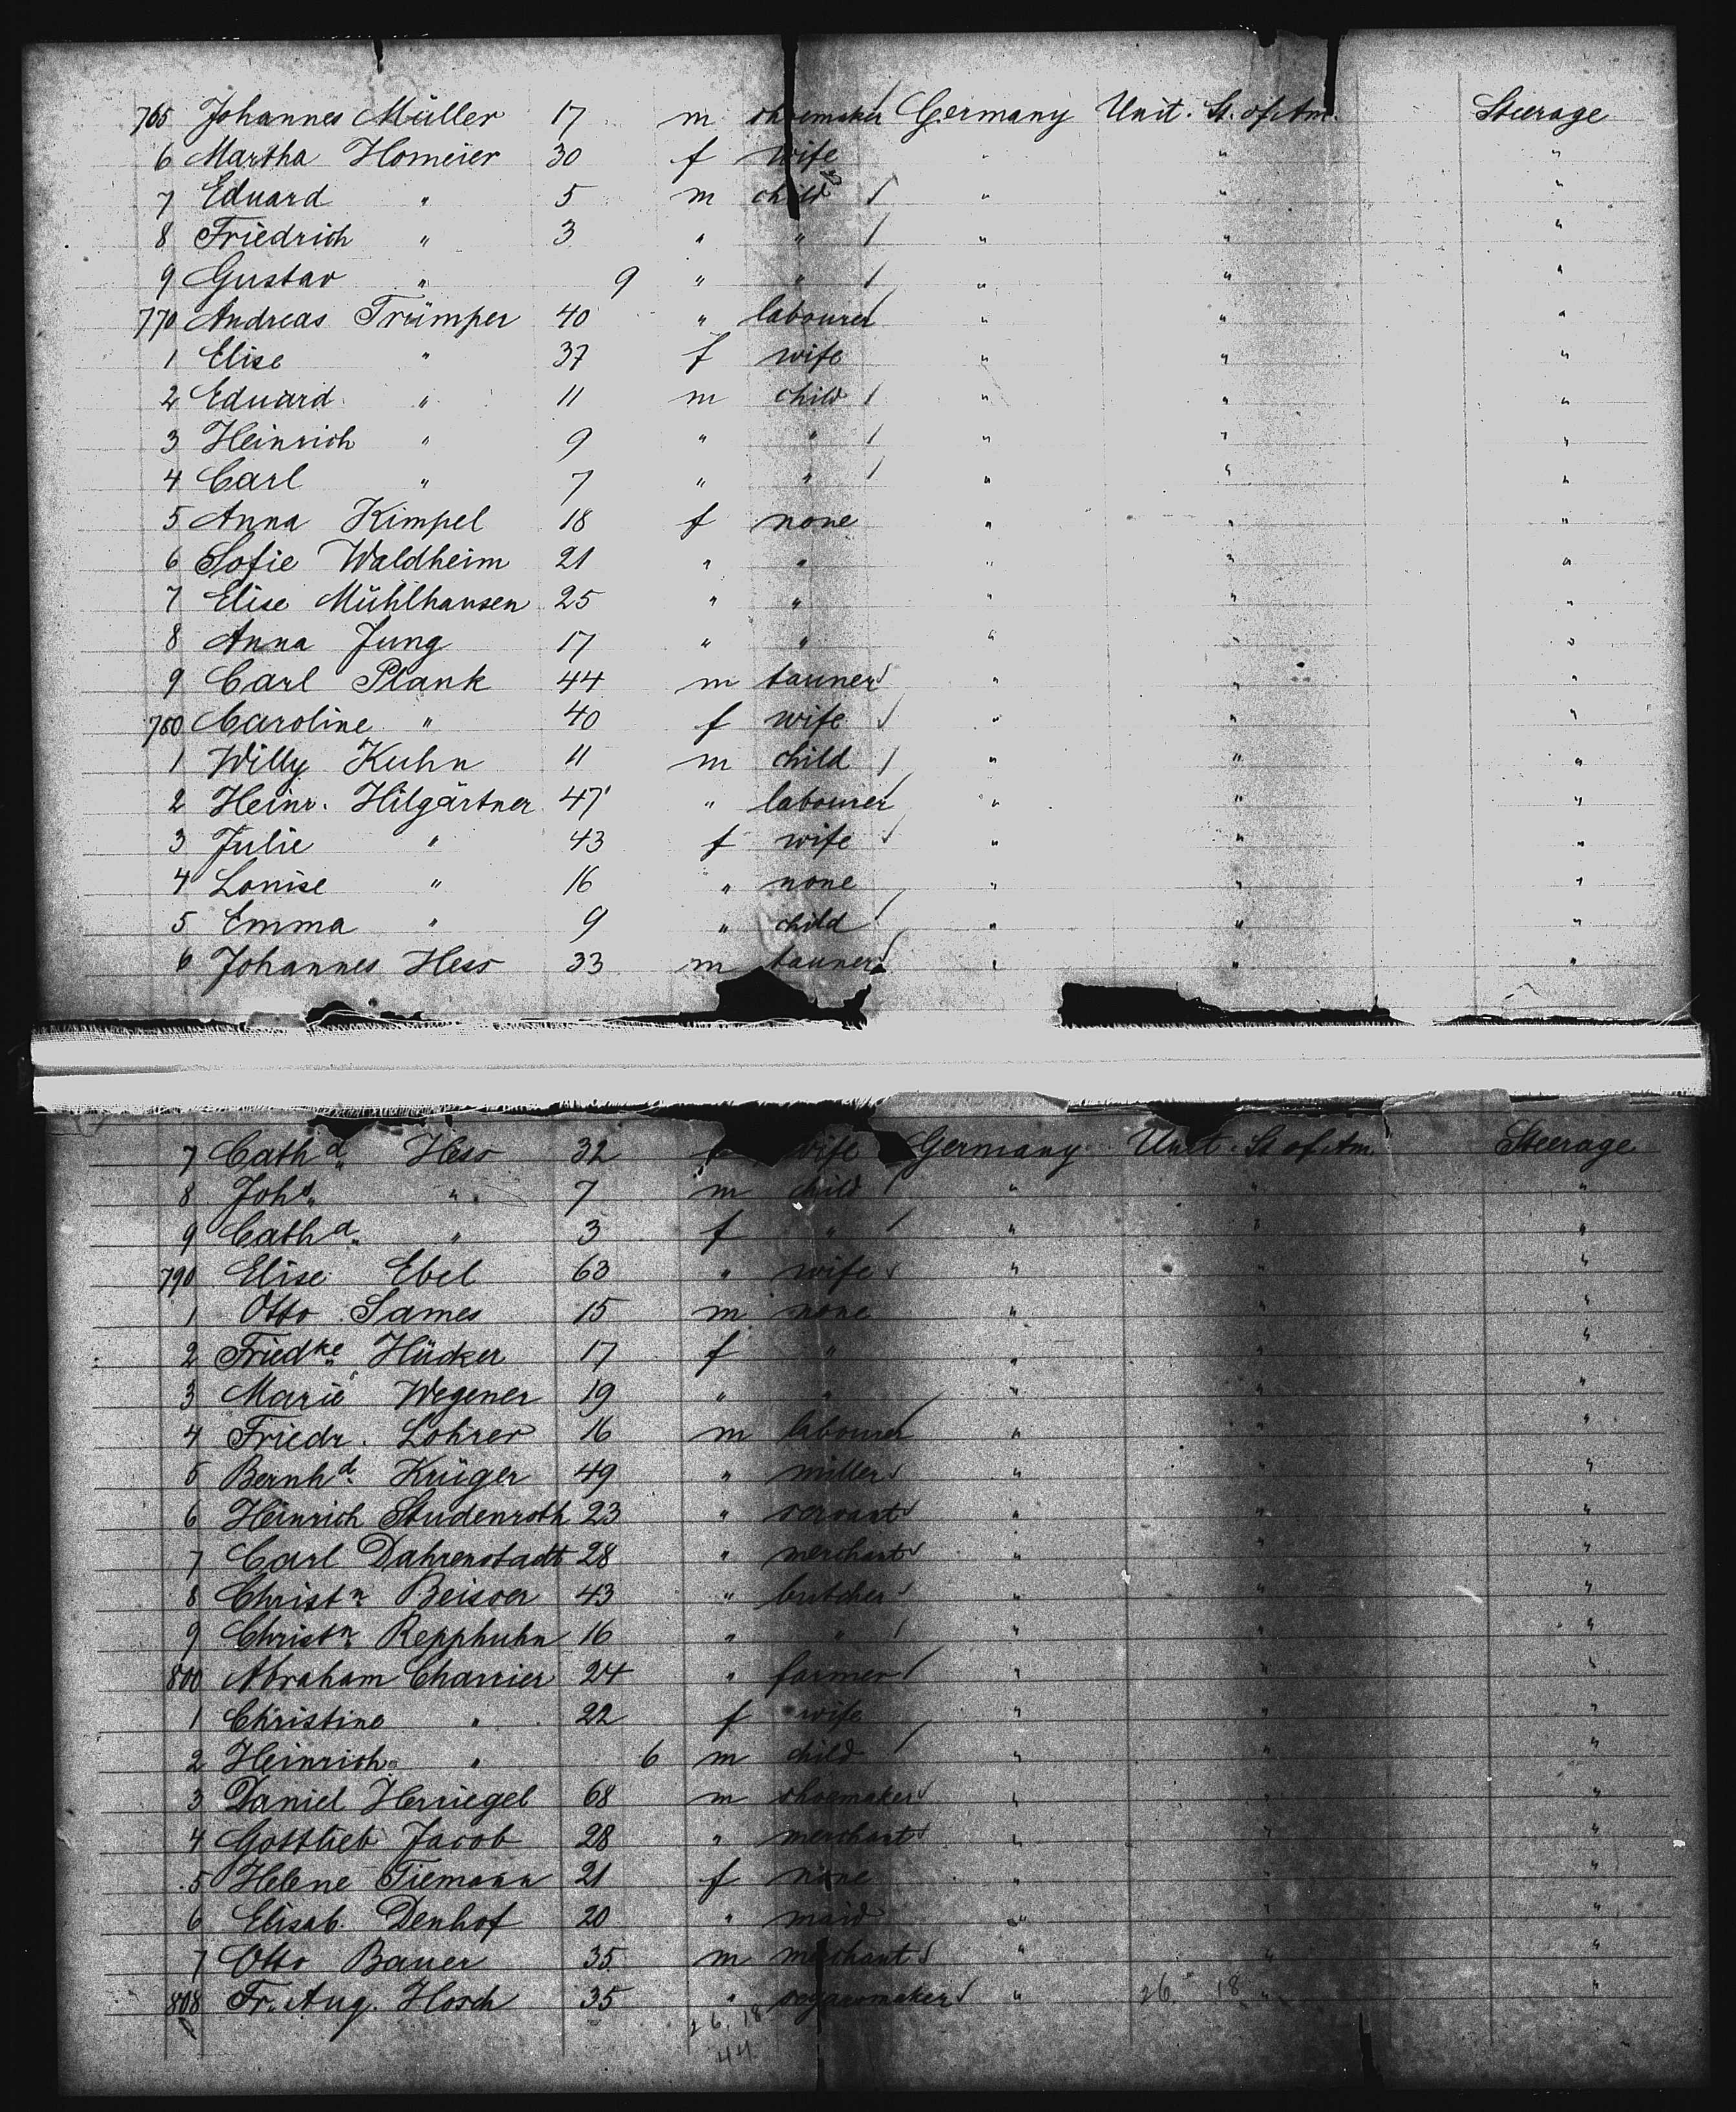 765 Johannes Müller 17 m shoemaker Germany Unit. St. of Am. Steerage
6 Martha Homeier 30 f wife " " "
7 Eduard " 5 m child " " "
8 Friedrich " 3 " " " " "
9 Gustav " 9 " " " " "
770 Andreas Trümper 40 " labourer " " "
1 Elise " 37 f wife " " "
2 Eduard " 11 m child " " "
3 Heinrich " 9 " " " " "
4 Carl " 7 " " " " "
5 Anna Kimpel 18 f none " " "
6 Sofie Waldheim 21 " " " " "
7 Elise Mühlhausen 25 " " " " "
8 Anna Jung 17 " " " " "
9 Carl Plank 44 m tanner " " "
780 Caroline " 40 f wife " " "
1 Willy Kuhn 11 m child " " "
2 Heinr. Hilgärtner 47 " labourer " " "
3 Julie " 43 f wife " " "
4 Louise " 16 " none " " "
5 Emma " 9 " child " " "
6 Johannes Hess 33 m tanner " " "
7 Cath a. Hess 32 f wife Germany Unit. St of Am. Steerage
8 Joh s. " 7 m child " " "
9 Cath a. " 3 f " " " "
790 Elise Ebel 63 " wife " " "
1 Otto Sames 15 m none " " "
2 Friedke Hücker 17 f " " " "
3 Marie Wegener 19 " " " " "
4 Friedr. Lohrer 16 m labourer " " "
5 Bernhd. Krüger 49 " miller " " "
6 Heinrich Studenroth 23 " servant " " "
7 Carl Dahrenstadt 28 " merchant " " "
8 Christn. Beisser 43 " butcher " " "
9 Christn. Repphuhn 16 " " " " "
800 Abraham Charrier 24 " farmer " " "
1 Christine " 22 f wife " " "
2 Heinrich " 6 m child " " "
3 Daniel Herriegel 68 m shoemaker " " "
4 Gottlieb Jacob 28 " merchant " " "
5 Helene Tiemann 21 f none " " "
6 Elisab. Denhof 20 " maid " " "
7 Otto Bauer 35 m merchant " " "
808 Fr. Aug. Hosch 35 " segarmaker " 26 18 " "
26. 18
44